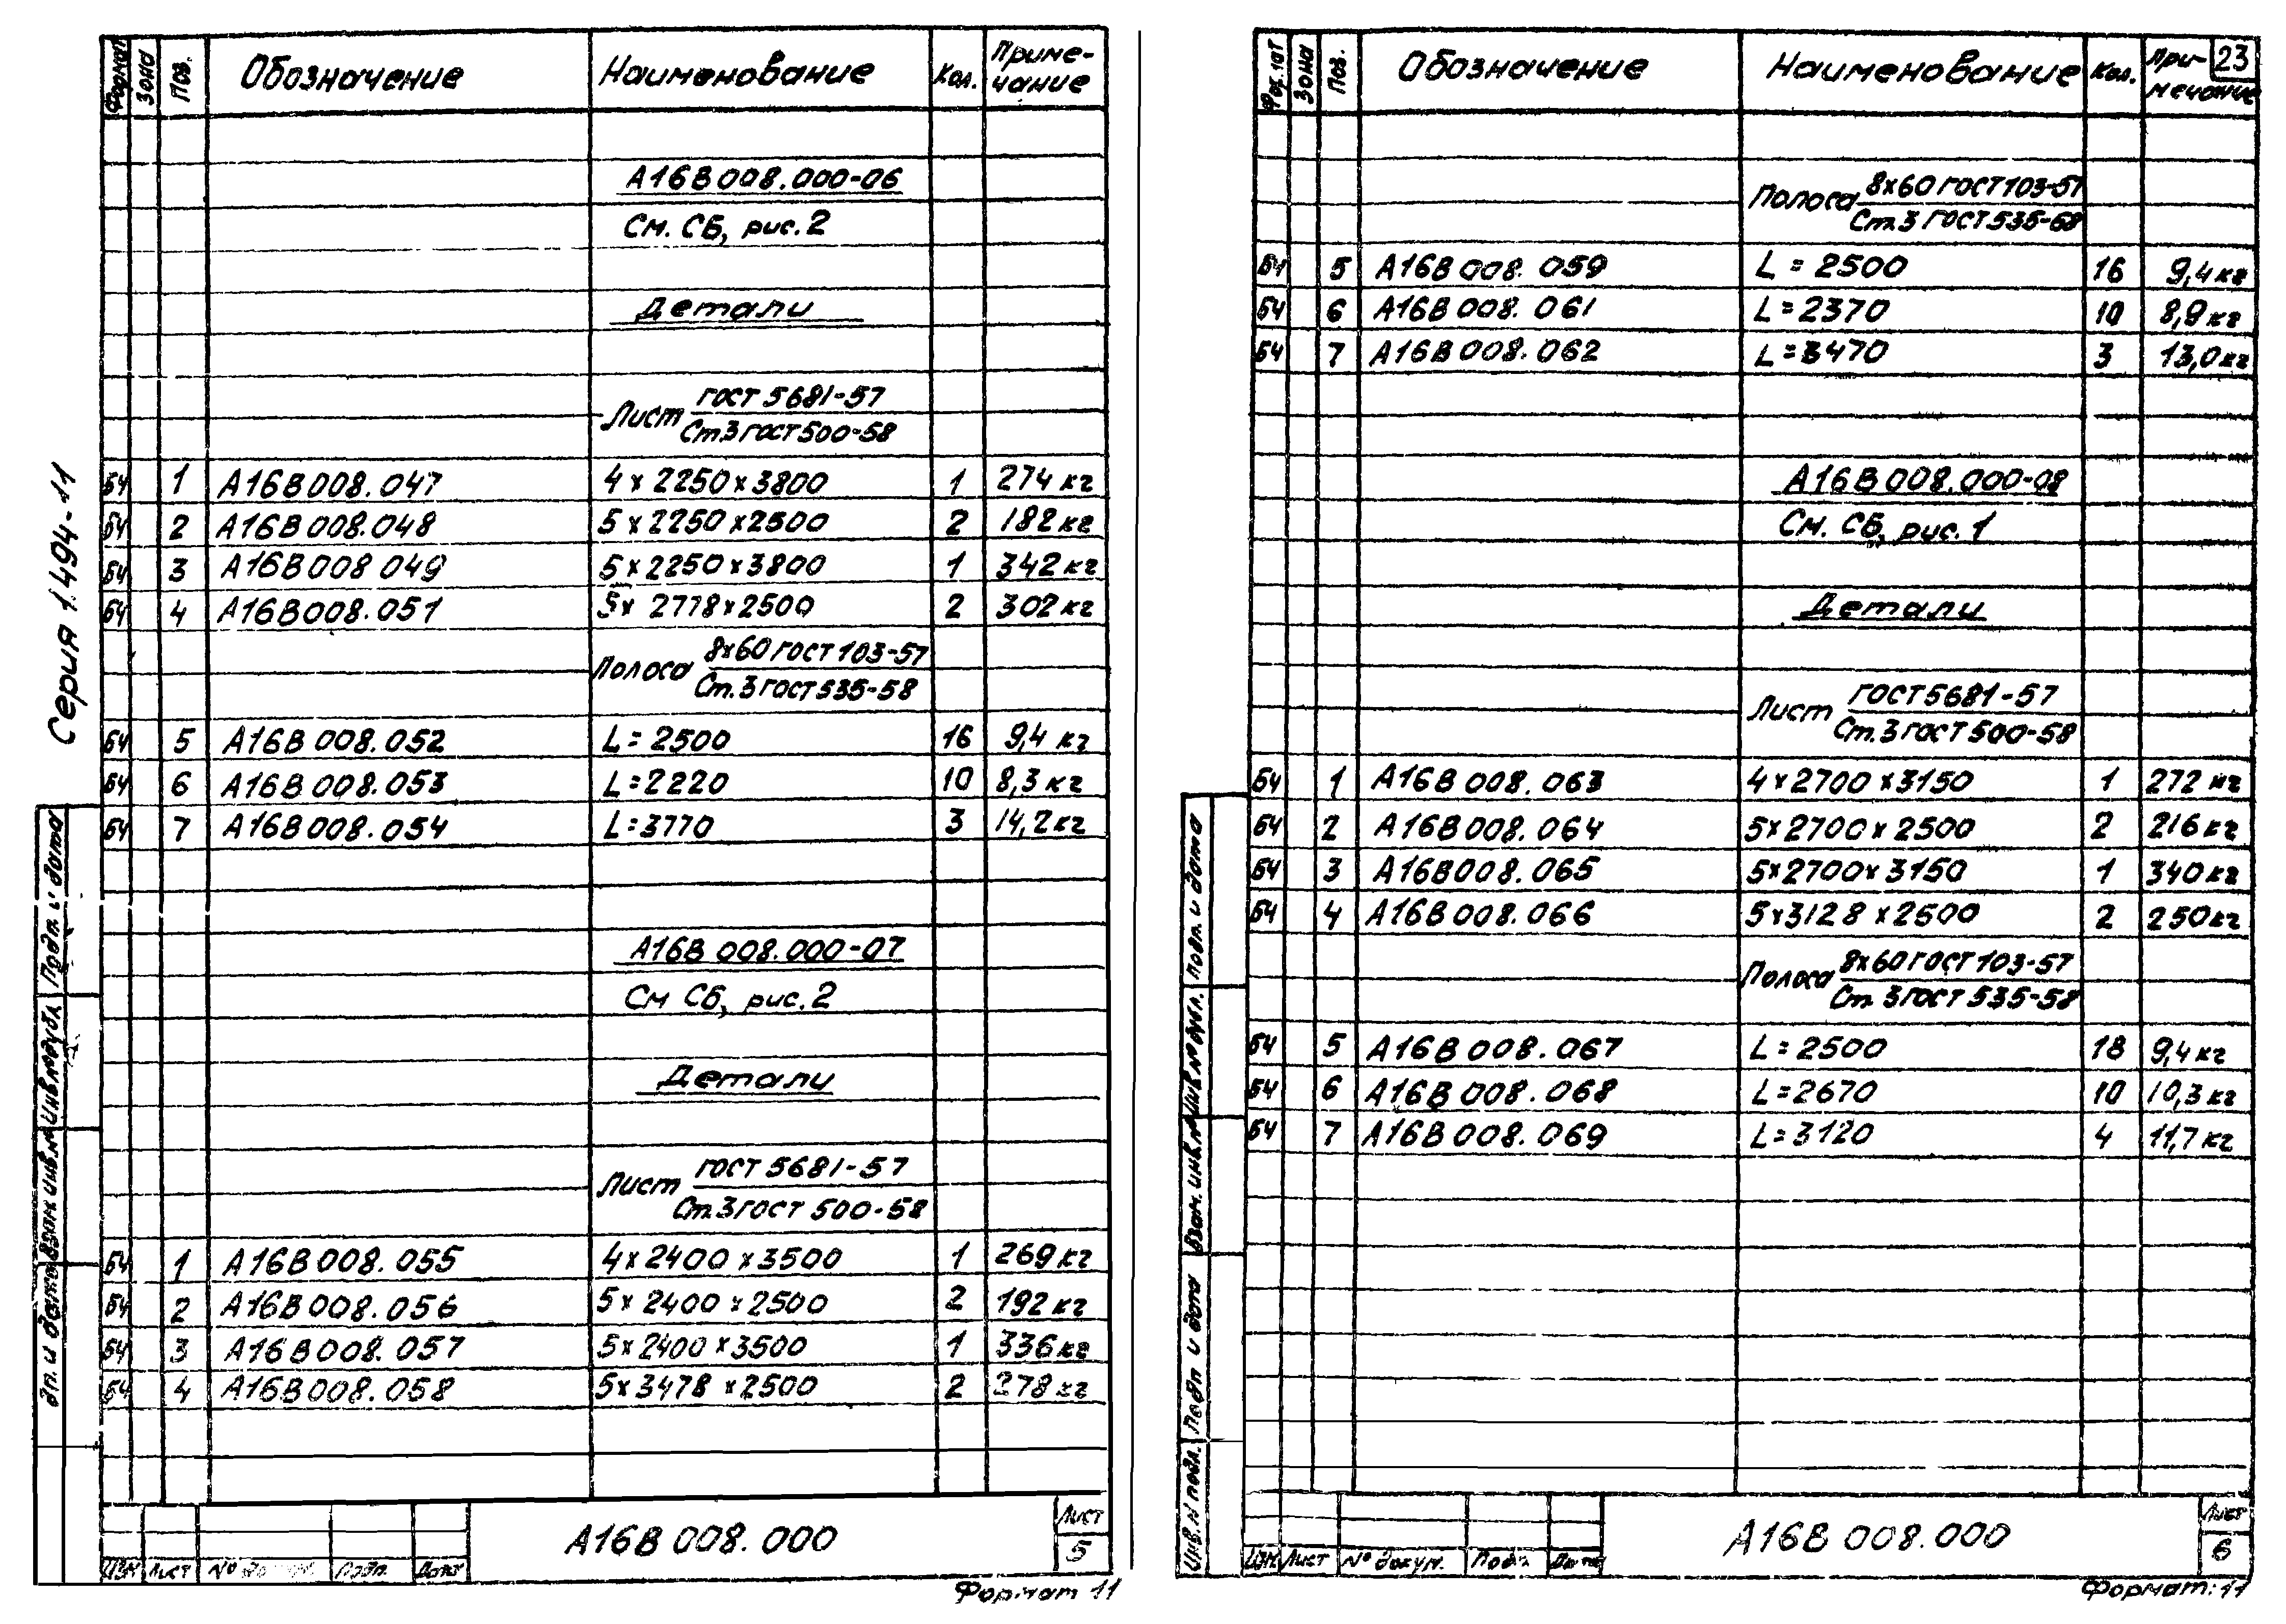 Серия 1.494-11
Формат Зона Поз. Обозначение Наименование Кол. Приме-
чание
А16В008.000-06
См. СБ, рис. 2
Детали
Лист ГОСТ 5681-57
Ст.3 ГОСТ 500-58
БЧ 1 А16В008.047 4 х 2250 х 3800 1 274 кг
БЧ 2 А16В008.048 5 х 2250 х 2500 2 182 кг
БЧ 3 А16В008 049 5 х 2250 х 3800 1 342 кг
БЧ 4 А16В008.051 5х 2778 х 2500 2 302 кг
Полоса 8х60 ГОСТ 103-57
Ст.3 ГОСТ 535-58
БЧ 5 А16В 008.052 L = 2500 16 9,4 кг
БЧ 6 А16В 008.053 L = 2220 10 8,3 кг
БЧ 7 А16В 008.054 L = 3770 3 14,2 кг
А16В 008.000-07
См СБ, рис. 2
Детали
Лист ГОСТ 5681-57
Ст.3 ГОСТ 500-58
БЧ 1 А16В008.055 4 х 2400 х 3500 1 269 кг
БЧ 2 А16В008.056 5 х 2400 х 2500 2 192 кг
БЧ 3 А16В008.057 5 х 2400 х 3500 1 336 кг
БЧ 4 А16В008.058 5 х 3478 х 2500 2 278 кг
Подп. и дата
Инв. № дубл.
Взам. инв. №
дп. и дата
Изм Лист № Подп. Дата
А16В 008.000
Лист
5
Формат 11
Зона Поз. Обозначение Наименование Кол. При-
мечание
23
Полоса 8х60 ГОСТ 103-57
Ст.3 ГОСТ 535-68
БЧ 5 А16В 008. 059 L = 2500 16 9,4 кг
БЧ 6 А16В 008. 061 L = 2370 10 8,9 кг
БЧ 7 А16В 008. 062 L = 3470 3 13,0 кг
А16В 008.000-08
См. СБ, рис. 1
Детали
Лист ГОСТ 5681-57
Ст.3 ГОСТ 500-58
БЧ 1 А16В 008. 063 4 х 2700 х 3150 1 272 кг
БЧ 2 А16В 008. 064 5 х 2700 х 2500 2 216 кг
БЧ 3 А16В008. 065 5 х 2700 х 3150 1 340 кг
БЧ 4 А16В 008. 066 5 х 3128 х 2500 2 250 кг
Полоса 8х60 ГОСТ 103-57
Ст. 3 ГОСТ 535-58
БЧ 5 А16В 008. 067 L = 2500 18 9,4 кг
БЧ 6 А16В 008. 068 L = 2670 10 10,3 кг
БЧ 7 А16В 008. 069 L = 3120 4 11,7 кг
подп. и дата
Инв. № дубл.
Взам. инв. №
Подп и дата
Инв. N подл.
Изм Лист № докум. Подп. Дата
А16В 008.000
Лист
6
Формат: 11